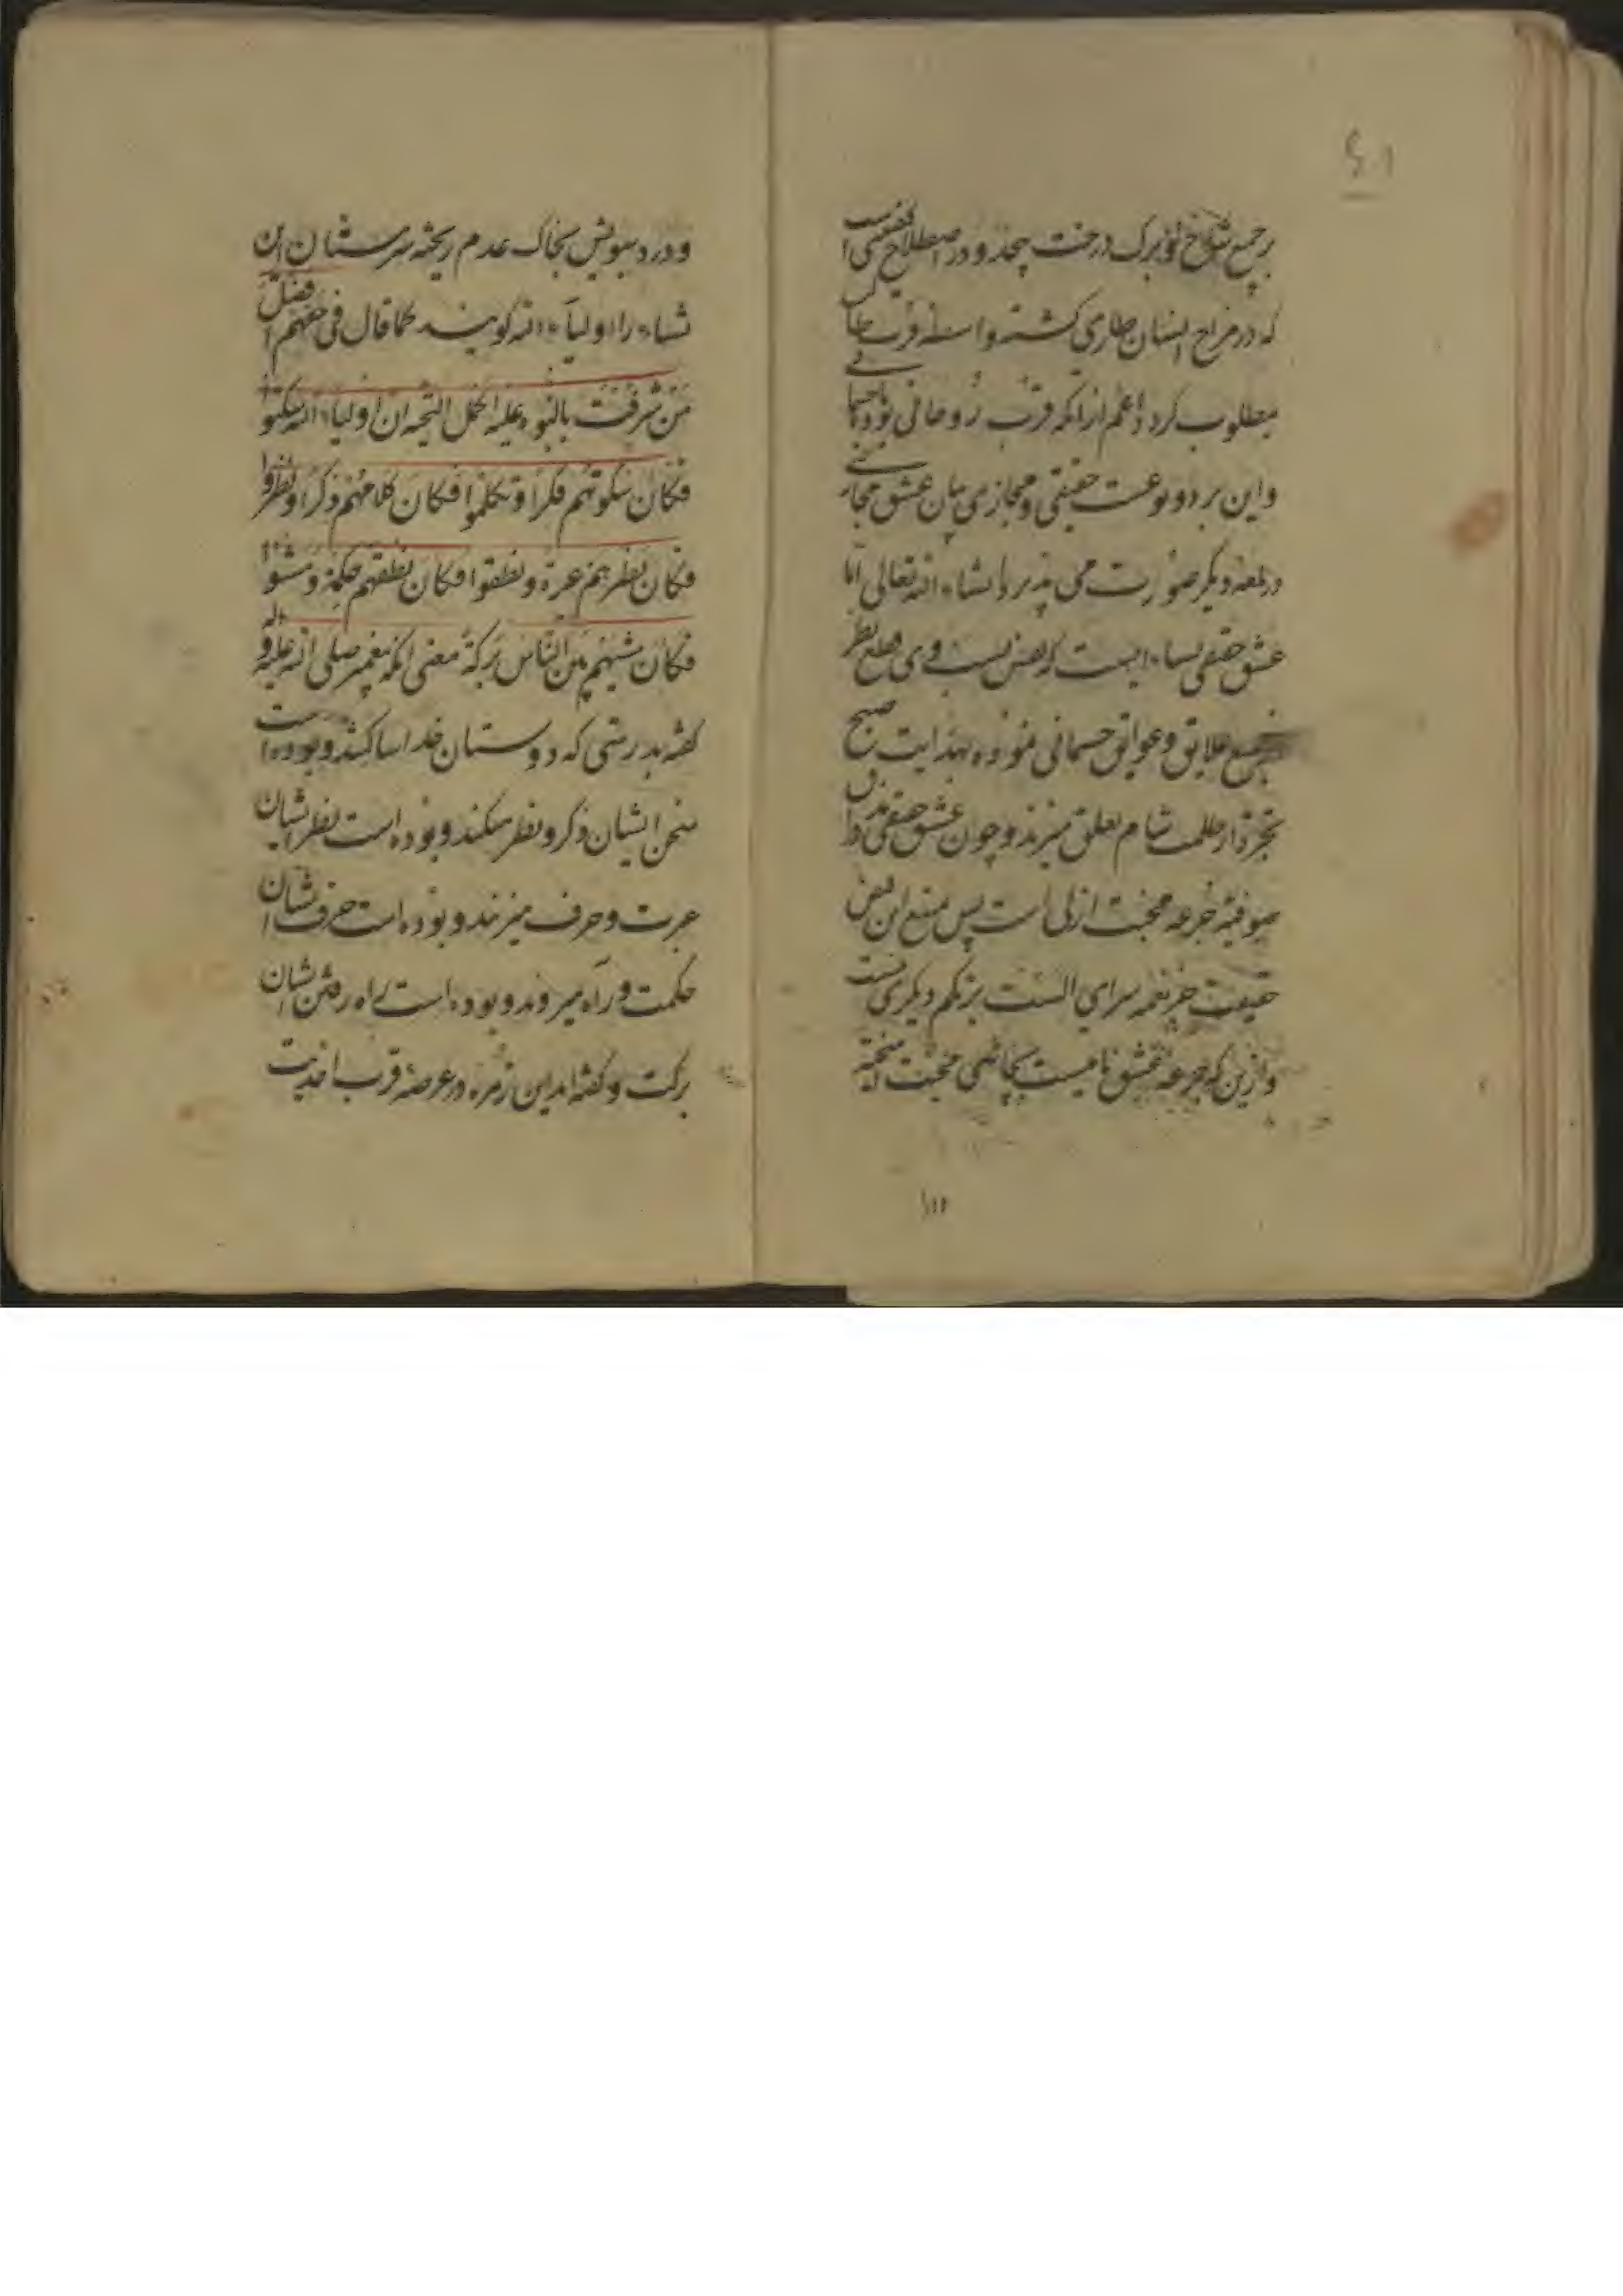 بر جمیع شاخ و برگ درخت پیچد و در اصطلاح
که در مزاج انسان طاری گشته واسطه قرب طالب
بمطلوب گردد اعم از آنکه قرب روحانی بود یا جسمانی
و این بر دو نوعست حقیقی و مجازی بیان عشق مجازی
در لمعه دیگر صورت می پذیرد انشاء الله تعالی اما
عشق حقیقی که قطع نظر
جمیع علایق و عوایق جسمانی نموده بهدایت صبح
تجرد از ظلمت شام تعلق میبرند و چون عشق حقیقی
صوفیه جرعه محبت ازلی است پس منبع این فیض
حقیقت جز نغمه سرای الست بربکم دیگری نیست
و ازین که جرعه عشق محبت
۱۱۲
و درد سبویش بخاک عدم ریخته سرمستان این
نشاء را اولیاء الله گویند کما قال فی حقهم افضل
من شرفت بالنبوه علیه اکمل التحیه ان اولیاء الله سکتوا
فکان سکوتهم فکرا و تکلموا فکان کلامهم ذکرا و نظروا
فکان نظرهم عبرة و نطقوا فکان نطقهم حکمة و مشوا
فکان مشیهم بین الناس برکة معنی آنکه پیغمبر صلی الله علیه و اله
گفته بدرستی که دوستان خدا ساکتند و بوده است
سخن ایشان ذکر و نظر میکنند و بوده است نظر ایشان
عبرت و حرف میزنند و بوده است حرف ایشان
حکمت و راه میروند و بوده است راه رفتن ایشان
برکت و گفته اند این زمره در عرصه قرب احدیت